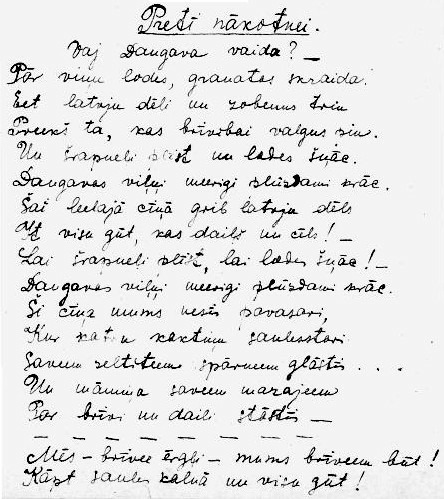 Pretī nākotnei.
Vaj Daugava vaida? —
Pār viņu lodes, granatas skraida.
Eet latvju dēli un zobenus trin
Preekš ta, kas brīvibai valgus pin.
Un šrapneli plīst un lodes šņāc.
Daugavas viļņi meerigi plūzdami krāc.
Šai leelajā cīņā grib latvju dēls
It visu gūt, kas daiļš un cēls! —
Lai šrapneli plīst, lai lodes šņāc! —
Daugavas viļņi meerigi plūzdami krāc.
Ši cīņa mums nesīs pavasari,
Kur katru kaktiņu saulesstari
Saveem zeltiteem spārneem glāstīs . . .
Un māmiņa saveem mazajeem
Par brīvi un daiļi stāstīs —
— — — — — — — —
Mēs – brīvee ērgļi – mums brīveem būt!
Kāpt saules kalnā un visu gūt!